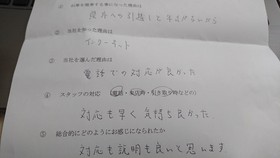 ② 当社を知った理由は
インターネット
③ 当社を選んだ理由は
電話での対応が良かった
④ スタッフの対応 (電話・来店時・引き取り時などの)
対応も早く気持ち良かった
⑤ 総合的にどのようにお感じになられたか
対応も説明も良いと思います